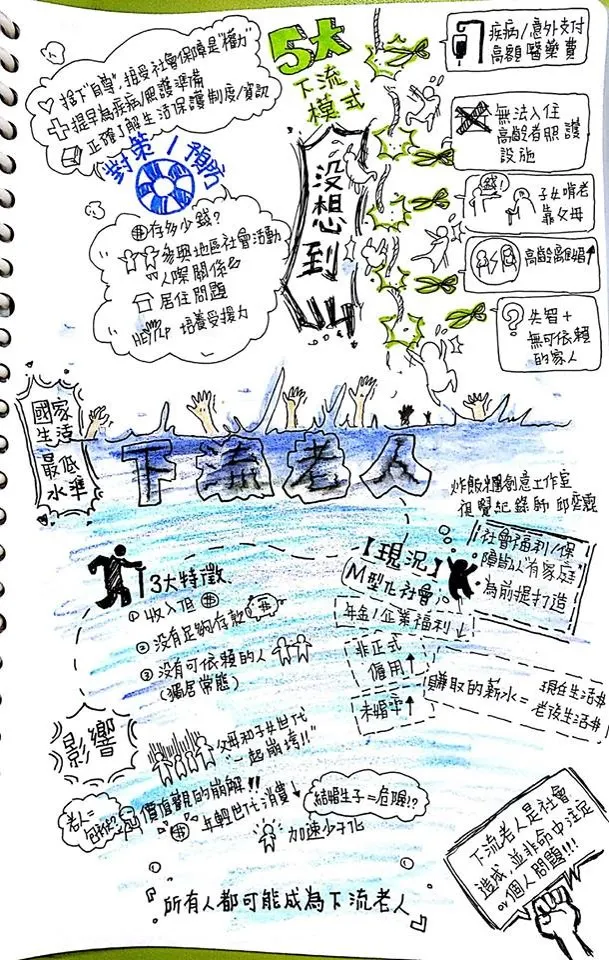 捨下"自尊",接受社會保障是"權力"
提早為疾病/照護準備
正確了解生活保護制度/資訊
對策/預防
存多少錢?
參與地區社會活動
人際關係
居住問題
HELP 培養受援力
5大
下流
模式
沒想到
疾病/意外支付
高額醫藥費
無法入住
高齡者照護
設施
錢!
子女啃老
靠父母
高齡離婚↑
?
失智+
無可依賴
的家人
國家
生活
最低
水準
下流老人
炸飯糰創意工作室
視覺紀錄師 邱奕霖
3大特徵
① 收入低
② 沒有足夠存款
③ 沒有可依賴的人
(獨居常態)
【現況】
M型化社會
年金/企業福利↓
非正式
僱用↑
未婚率↑
社會福利/保
障皆以"有家庭"
為前提打造
賺取的薪水=
現在生活#
老後生活#
影響
父母和子女世代
"一起崩垮!!"
老人=
價值觀的崩解!!
年輕世代消費↓
結婚生子=危險!?
加速少子化
『所有人都可能成為下流老人』
下流老人是社會
造成,並非命中注定
or 個人問題!!!